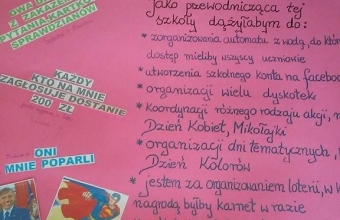 DWA D
Z ZAKAZEM
PYTANIA, KARTKÓ
SPRAWDZIANÓW
KAŻDY
KTO NA MNIE
ZAGŁOSUJE DOSTANIE
200 ZŁ
ONI
MNIE POPARLI
Jako przewodnicząca tej
szkoły dążyłabym do:
* zorganizowania automatu z wodą, do któ
dostęp mieliby wszyscy uczniowie
* utworzenia szkolnego konta na facebo
* organizacji wielu dyskotek
* Koordynacji różnego rodzaju akcji, n
Dzień Kobiet, Mikołajki
* organizacji dni tematycznych,
Dzień Kolorów
* jestem za organizowaniem loterii, w k
nagrodą byłby karnet w razie